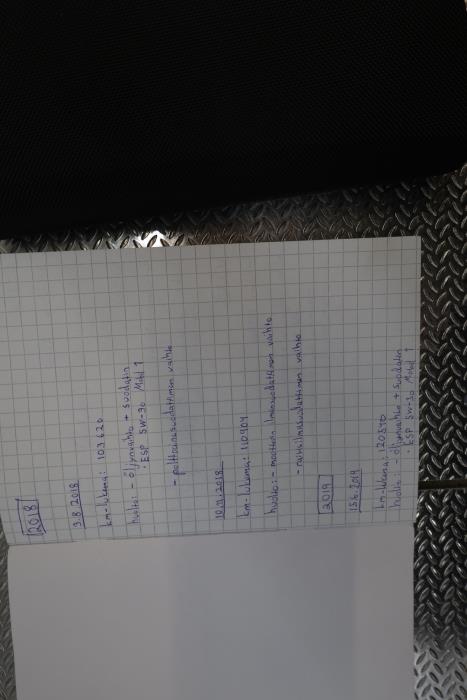 2018
3.8.2018
km-lukema: 103 620
huolto: - öljynvaihto + suodatin
ESP 5W-30 Mobil 1
- polttoainesuodattimen vaihto
10.11.2018
km-lukema: 110904
huolto: - moottorin ilmansuodattimen vaihto
- raitisilmasuodattimen vaihto
2019
15.6.2019
km-lukema: 120540
huolto: - öljynvaihto + suodatin
ESP 5W-30 Mobil 1